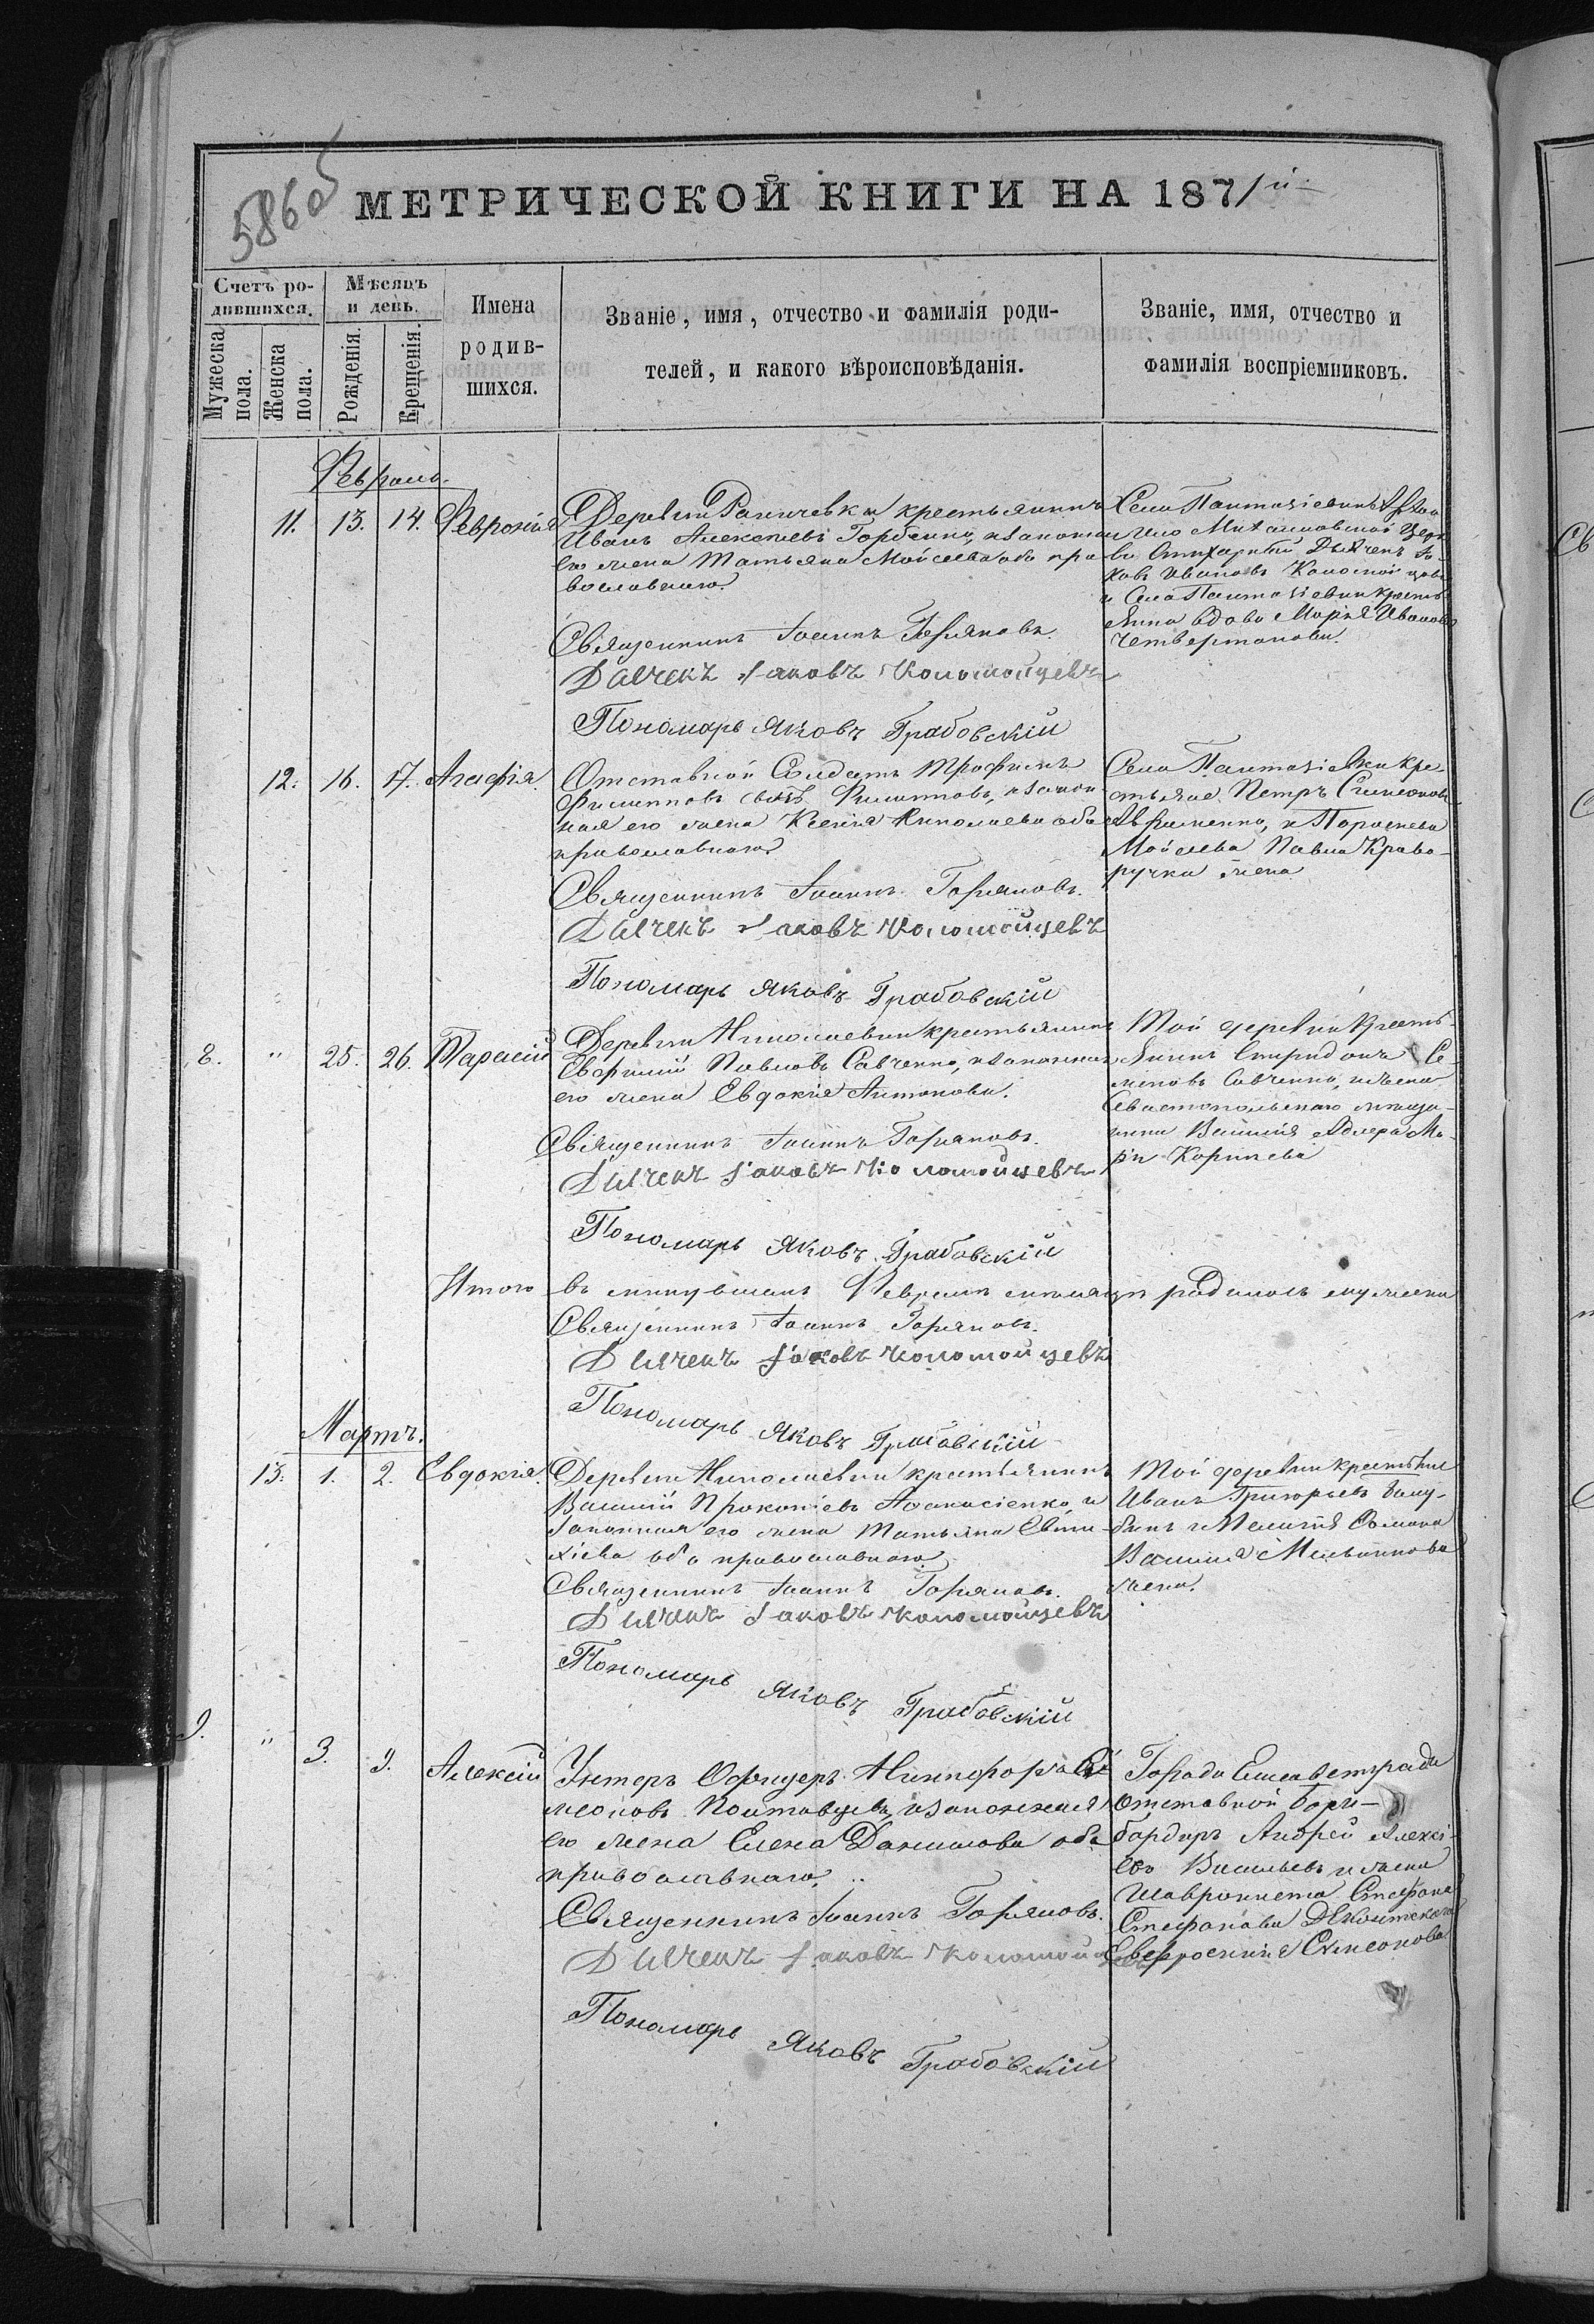 586об
МЕТРИЧЕСКОЙ КНИГИ НА 1871й
Счетъ ро-
дившихся.
Мужеска
пола.
Женска
пола.
Мѣсяцъ
и день.
Рожденія.
Крещенія.
Имена
родив-
шихся.
Званіе, имя, отчество и фамилія роди-
телей, и какого вѣроисповѣданія.
Званіе, имя, отчество и
фамилія воспріемниковъ.
Февраль.
11. 13. 14. Февронія
Деревни крестьянинъ
Иванъ Алексѣевъ Горбенко, и законная
его жена Татьяна Моисеева оба пра
вославнаго.
Священникъ Іоаннъ Горяновъ.
Дьячекъ Іаковъ Коломойцевъ
Пономарь Яковъ Грабовскій
Села Пантазіевки
Михайловской Церк
ви Дьячекъ Іа-
ковъ Ивановъ Коломойцевъ
и Села Пантазіевки кресть
янка вдова Марія Иванова
Четвертакова.
12. 16. 17. Агафія.
Отставной Солдатъ Трофимъ
Филипповъ сынъ Филипповъ, и закон
ная его жена Ксенія Николаева оба
православнаго
Священникъ Іоаннъ Горяновъ.
Дьячекъ Іаковъ Коломойцевъ
Пономарь Яковъ Грабовскій
Села Пантазіевки кре
стьяне Петръ Симеоновъ
и Параскева
Моисеева Павла Криво-
ручка жена
8. " 25. 26. Тарасій
Деревни Николаевки крестьянинъ
Евфимій Павловъ Савченко, и законная
его жена Евдокія Антонова.
Священникъ Іоаннъ Горяновъ.
Дьячекъ Іаковъ Коломойцевъ
Пономарь Яковъ Грабовскій
Той деревни кресть-
янинъ Спиридонъ Се-
меновъ Савченко, и жена
Севастопольскаго мѣща-
нина Василія Ма-
рія Корнѣева
Итого въ минувшемъ Февралѣ мѣсяцѣ родилось мужеска
Священникъ Іоаннъ Горяновъ.
Дьячекъ Іаковъ Коломойцевъ
Пономарь Яковъ Грабовскій
Мартъ.
13. 1. 2. Евдокія.
Деревни Николаевки крестьянинъ
Василій Прокопіевъ Афанасіенко, и
законная его жена Татьяна Евти-
хіева оба православнаго
Священникъ Іоаннъ Горяновъ.
Дьячекъ Іаковъ Коломойцевъ
Пономарь Яковъ Грабовскій
Той деревни крестьяне
Иванъ Григорьевъ
и
Василія Мельникова
жена.
9. " 3. 9. Алексій
Унтеръ Офицеръ Никифоръ Си
меоновъ Полтавцевъ, и законная
его жена Елена Данилова оба
православнаго.
Священникъ Іоаннъ Горяновъ.
Дьячекъ Іаковъ Коломойцевъ
Пономарь Яковъ Грабовскій
Города Елисаветграда
Отставной Бом-
бардиръ Андрей Алексі
евъ Васильевъ и жена
Стефана
Стефанова
Евфросинія Симеонова